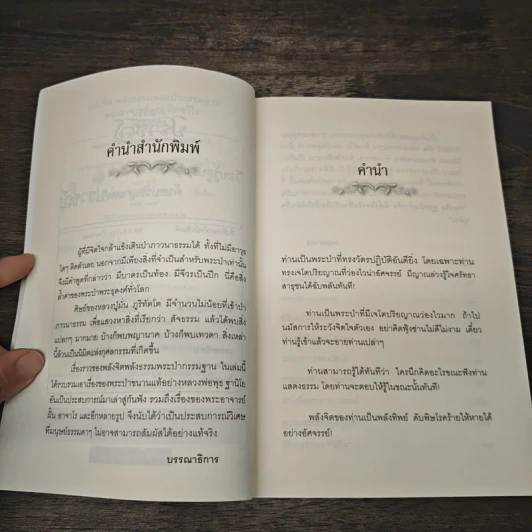 คำนำสำนักพิมพ์
ผู้ที่มีจิตใจกล้าแข็งเดินป่าภาวนาธรรมได้ ทั้งที่ไม่มีอาวุธ
ใดๆ ติดตัวเลย นอกจากมีเพียงสิ่งที่จำเป็นสำหรับพระป่าเท่านั้น
จึงมีคำพูดที่กล่าวว่า มีบาตรเป็นท้อง มีจีวรเป็นปีก นี่คือสิ่ง
ล้ำค่าของพระป่าพระธุดงค์ทั่วโลก
ศิษย์ของหลวงปู่มั่น ภูริทัตโต มีจำนวนไม่น้อยที่เข้าป่า
ภาวนาธรรม เพื่อแสวงหาสิ่งที่เรียกว่า สัจธรรม แล้วได้พบสิ่ง
แปลกๆ มากมาย บ้างก็พบพญานาค บ้างก็พบเทวดา สิ่งเหล่า
นี้ล้วนเป็นนิมิตแห่งกุศลกรรมที่เกิดขึ้น
เรื่องราวของพลังจิตพลังธรรมพระป่ากรรมฐาน ในเล่มนี้
ได้รวบรวมเอาเรื่องของพระป่าขนานแท้อย่างหลวงพ่อพุธ ฐานิโย
อันเป็นประสบการณ์มาเล่าสู่กันฟัง รวมถึงเรื่องของพระอาจารย์
มั่น อาจาโร และอีกหลายรูป จึงนับได้ว่าเป็นประสบการณ์วิเศษ
ที่มนุษย์ธรรมดาๆ ไม่อาจสามารถสัมผัสได้อย่างแท้จริง
บรรณาธิการ
คำนำ
ท่านเป็นพระป่าที่ทรงวัตรปฏิบัติอันดียิ่ง โดยเฉพาะท่าน
ทรงเจโตปริยญาณที่ว่องไวน่าอัศจรรย์ มีญาณล่วงรู้ใจศรัทธา
สาธุชนได้ฉับพลันทันที!
ท่านเป็นพระป่าที่มีเจโตปริยญาณว่องไวมาก ถ้าไป
นมัสการให้ระวังจิตใจตัวเอง อย่าคิดฟุ้งซ่านไม่ดีไม่งาม เดี๋ยว
ท่านรู้เข้าแล้วจะอายท่านเปล่าๆ
ท่านสามารถรู้ได้ทันทีว่า ใครนึกคิดอะไรขณะฟังท่าน
แสดงธรรม โดยท่านจะตอบให้รู้ในขณะนั้นทันที!
พลังจิตของท่านเป็นพลังทิพย์ ดับพิษโรคร้ายให้หายได้
อย่างอัศจรรย์!